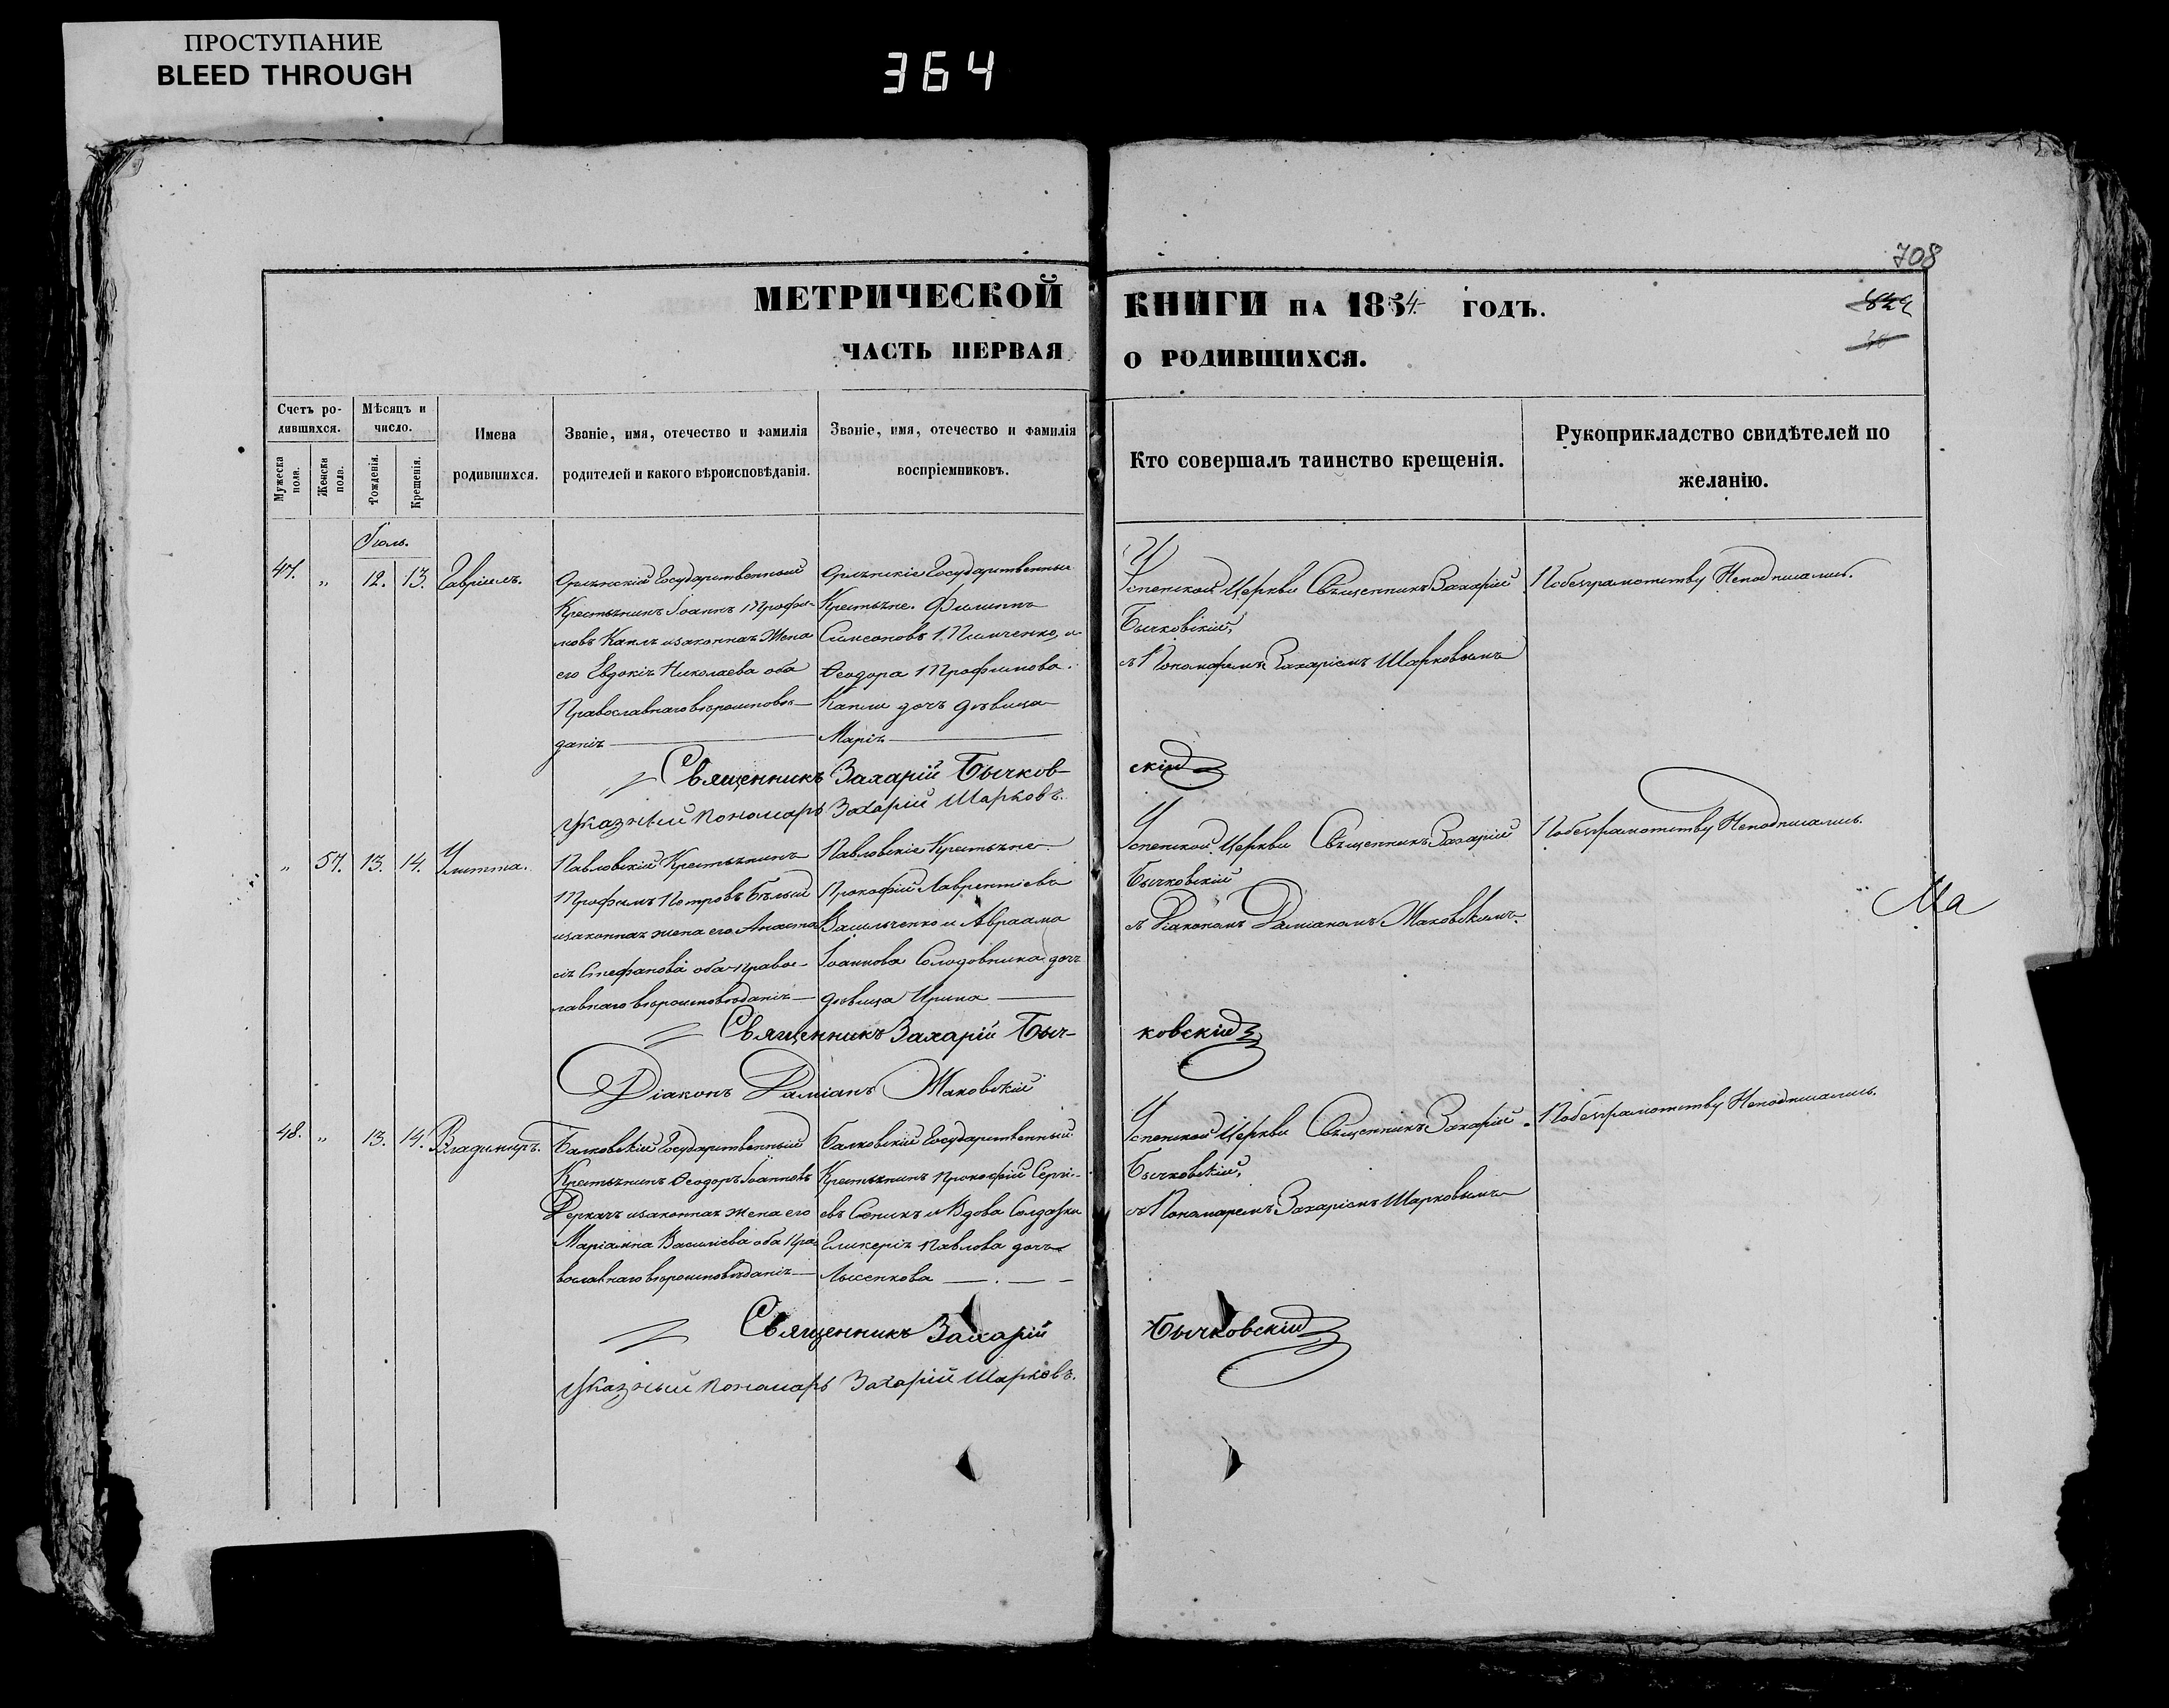 ПРОСТУПАНИЕ
BLEED THROUGH
364
708
МЕТРИЧЕСКОЙ КНИГИ НА 1854 ГОДЪ.
ЧАСТЬ ПЕРВАЯ О РОДИВШИХСЯ.
Счетъ родившихся.
Мужеска пола.
Женски пола.
Мѣсяцъ и число.
Рожденія.
Крещенія.
Имена
родившихся.
Званіе, имя, отечество и фамилія
родителей и какого вѣроисповѣданія.
Званіе, имя, отечество и фамилія
воспріемниковъ.
Кто совершалъ таинство крещенія.
Рукоприкладство свидѣтелей по
желанію.
Іюль.
47. „ 12. 13. Гавріилъ.
Государственный
Крестьянинъ Іоаннъ Трофи-
мовъ Капля изаконная жена
его Евдокія Николаева оба
Православнаго вѣроисповѣ-
данія
Государственные
Крестьяне. Филиппъ
Симеоновъ Тимченко, и
Ѳеодора Трофимова
Капли дочь дѣвица
Марія
Успенской Церкви Священникъ Захарій
Бычковскій,
съ Пономаремъ Захаріемъ Шарковымъ
Побезграмотству Неподписались.
Священникъ Захарій Бычков-
скій
Указный пономарь Захарій Шарковъ.
„ 57. 13. 14. Улитта.
Павловскій Крестьянинъ
Трофимъ Петровъ Бѣлый
изаконная жена его Анаста
сія Стефанова оба правос-
лавнаго вѣроисповѣданія
Павловскіе Крестьяне
Прокофій Лаврентіевъ
Васильченко и Авраама
Іоаннова Солодовника дочь
дѣвица Ирина
Успенской Церкви Священникъ Захарій
Бычковскій
съ Діакономъ Даміаномъ Маковскимъ.
Побезграмотству Неподписались.
Ма
Священникъ Захарій Быч-
ковскій
Діаконъ Даміанъ Маковскій
48. „ 13. 14. Владимиръ.
Балковскій Государственный
Крестьянинъ Ѳеодоръ Іоанновъ
Деркачъ изаконная жена его
Маріанна Василіева оба Пра
вославнаго вѣроисповѣданія
Балковскій Государственный
Крестьянинъ Прокофій Сергі-
евъ и Вдова Солдатка
Гликерія Павлова дочь
Лысенкова
Успенской Церкви Священникъ Захарій
Бычковскій,
съ Пономаремъ Захаріемъ Шарковымъ
Побезграмотству Неподписались.
Священникъ Захарій
Бычковскій
Указный пономарь Захарій Шарковъ.